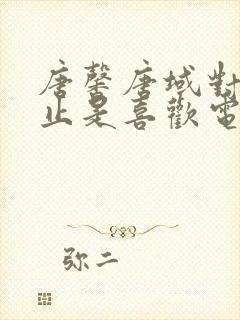 唐馨唐域對
止是喜歡電
弥二